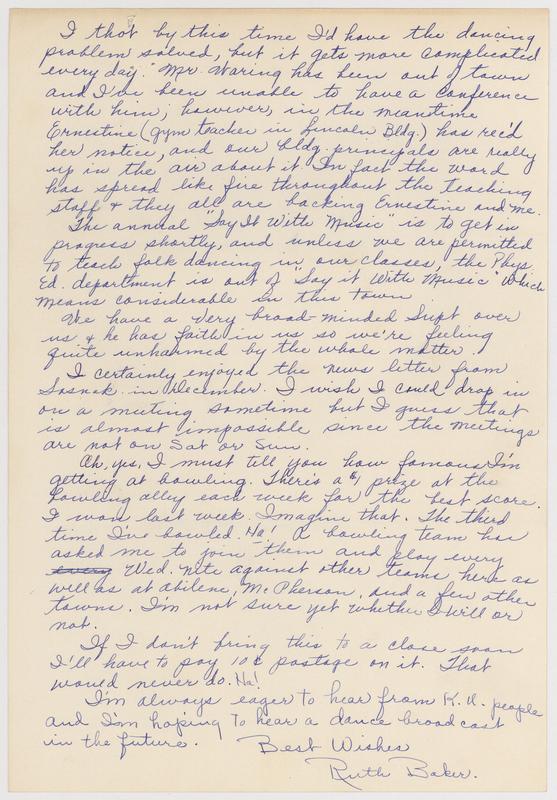 I thot by this time I'd have the dancing
problem solved, but it gets more complicated
every day. Mr. Waring has been out of town
and I've been unable to have a conference
with him; however, in the meantime
Ernestine (Gym teacher in Lincoln Bldg.) has rec'd
her notice, and our bldg. principals are really
up in the air about it. In fact the word
has spread like fire throughout the teaching
staff & they all are backing Ernestine and me.
The annual "Say It With Music" is to get in
progress shortly, and unless we are permitted
to teach folk dancing in our classes, the Phys.
Ed. department is out of "Say it With Music" which
means considerable in this town
We have a very broad-minded Supt over
us & he has faith in us so we're feeling
quite unharmed by the whole matter.
I certainly enjoyed the news letter from
in December. I wish I could drop in
on a meeting sometime but I guess that
is almost impossible since the meetings
are not on Sat or Sun.
Oh, yes, I must tell you how famous I'm
getting at bowling. There's a $1 prize at the
bowling alley each week for the best score.
I won last week. Imagine that. The third
time I've bowled. Ha! A bowling team has
asked me to join them and play every
every Wed. nite against other teams here as
well as at Abilene, McPherson, and a few other
towns. I'm not sure yet whether I will or
not.
If I don't bring this to a close soon
I'll have to pay 10¢ postage on it. That
would never do. Ha!
I'm always eager to hear from K.U. people
and I'm hoping to hear a dance broadcast
in the future. Best Wishes
Ruth Baker.